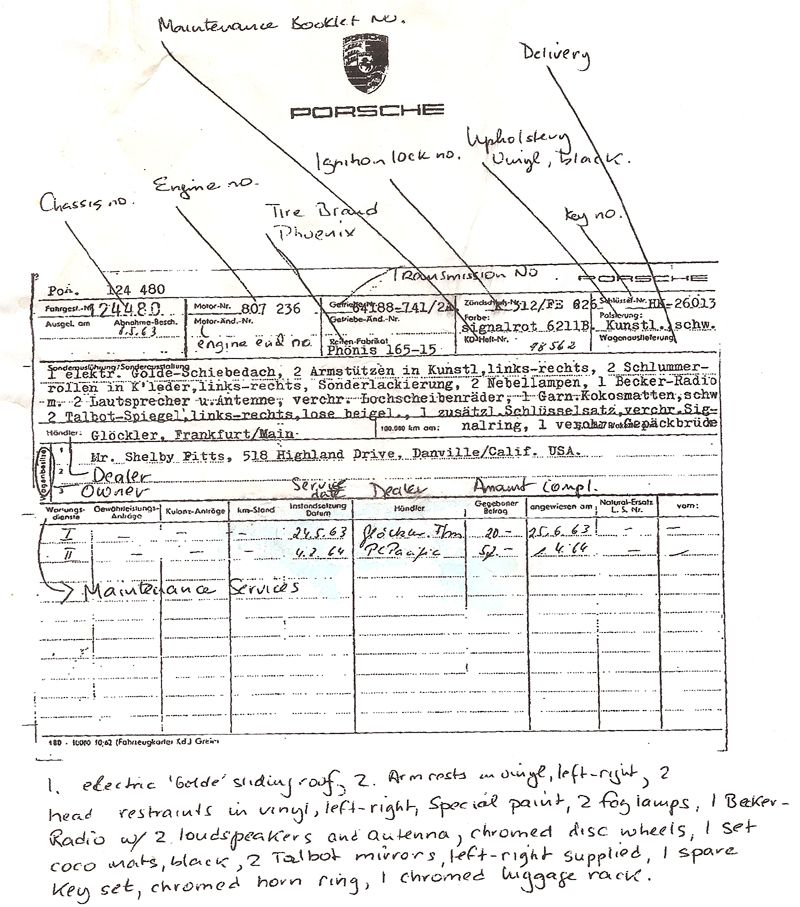 Maintenance Booklet no.
Delivery
PORSCHE
Ignition lock no.
Upholstery
Vinyl, black.
Chassis no.
Engine no.
Tire Brand
Phoenix
Key no.
Transmission No
PORSCHE
124 480
Fahrgest.-Nr. 124480
Motor-Nr. 807 236
64188-741/2A
Schlüssel-Nr. HK-26013
Ausgel. am Abnahme-Besch.
Motor-Änd.-Nr.
Getriebe-Änd.-Nr.
Farbe:
Polsterung:
8.5.63
signalrot 6211B
Kunstl., schw.
engine end no.
Reifen-Fabrikat
KD-Heft-Nr. 98562
Wagenauslieferung
Phönis 165-15
Sonderausführung/Sonderausstattung
1 elektr. Golde-Schiebedach, 2 Armstützen in Kunstl,links-rechts, 2 Schlummer-
rollen in K'leder,links-rechts, Sonderlackierung, 2 Nebellampen, 1 Becker-Radio
m. 2 Lautsprecher u.Antenne, verchr. Lochscheibenräder, 1 Garn.Kokosmatten,schw
2 Talbot-Spiegel,links-rechts,lose beigel., 1 zusätzl.Schlüsselsatz,verchr.Sig-
Händler: Glöckler, Frankfurt/Main
100.000 km am: nalring, 1 Gepäckbrüde
1 Mr. Shelby Pitts, 518 Highland Drive, Danville/Calif. USA.
2 Dealer
3 Owner
Service date Dealer Amount compl.
Wartungs-dienste Gewährleistungs-Anträge Kulanz-Anträge km-Stand Instandsetzung Datum Händler Gegebener Betrag angewiesen am Natural-Ersatz L. S. Nr. vom:
I — — — 24.5.63 Glöckler Ffm 20.- 25.6.63 — —
II — — — 4.2.64 — —
Maintenance Services
180 - 10000 10.62 (Fahrzeugkartei Kd.) Greim
1. electric 'Golde' sliding roof, 2. Armrests in vinyl, left-right, 2
head restraints in vinyl, left-right, Special paint, 2 fog lamps, 1 Beker-
Radio w/ 2 loudspeakers and antenna, chromed disc wheels, 1 set
coco mats, black, 2 Talbot mirrors, left-right supplied, 1 spare
Key set, chromed horn ring, 1 chromed luggage rack.